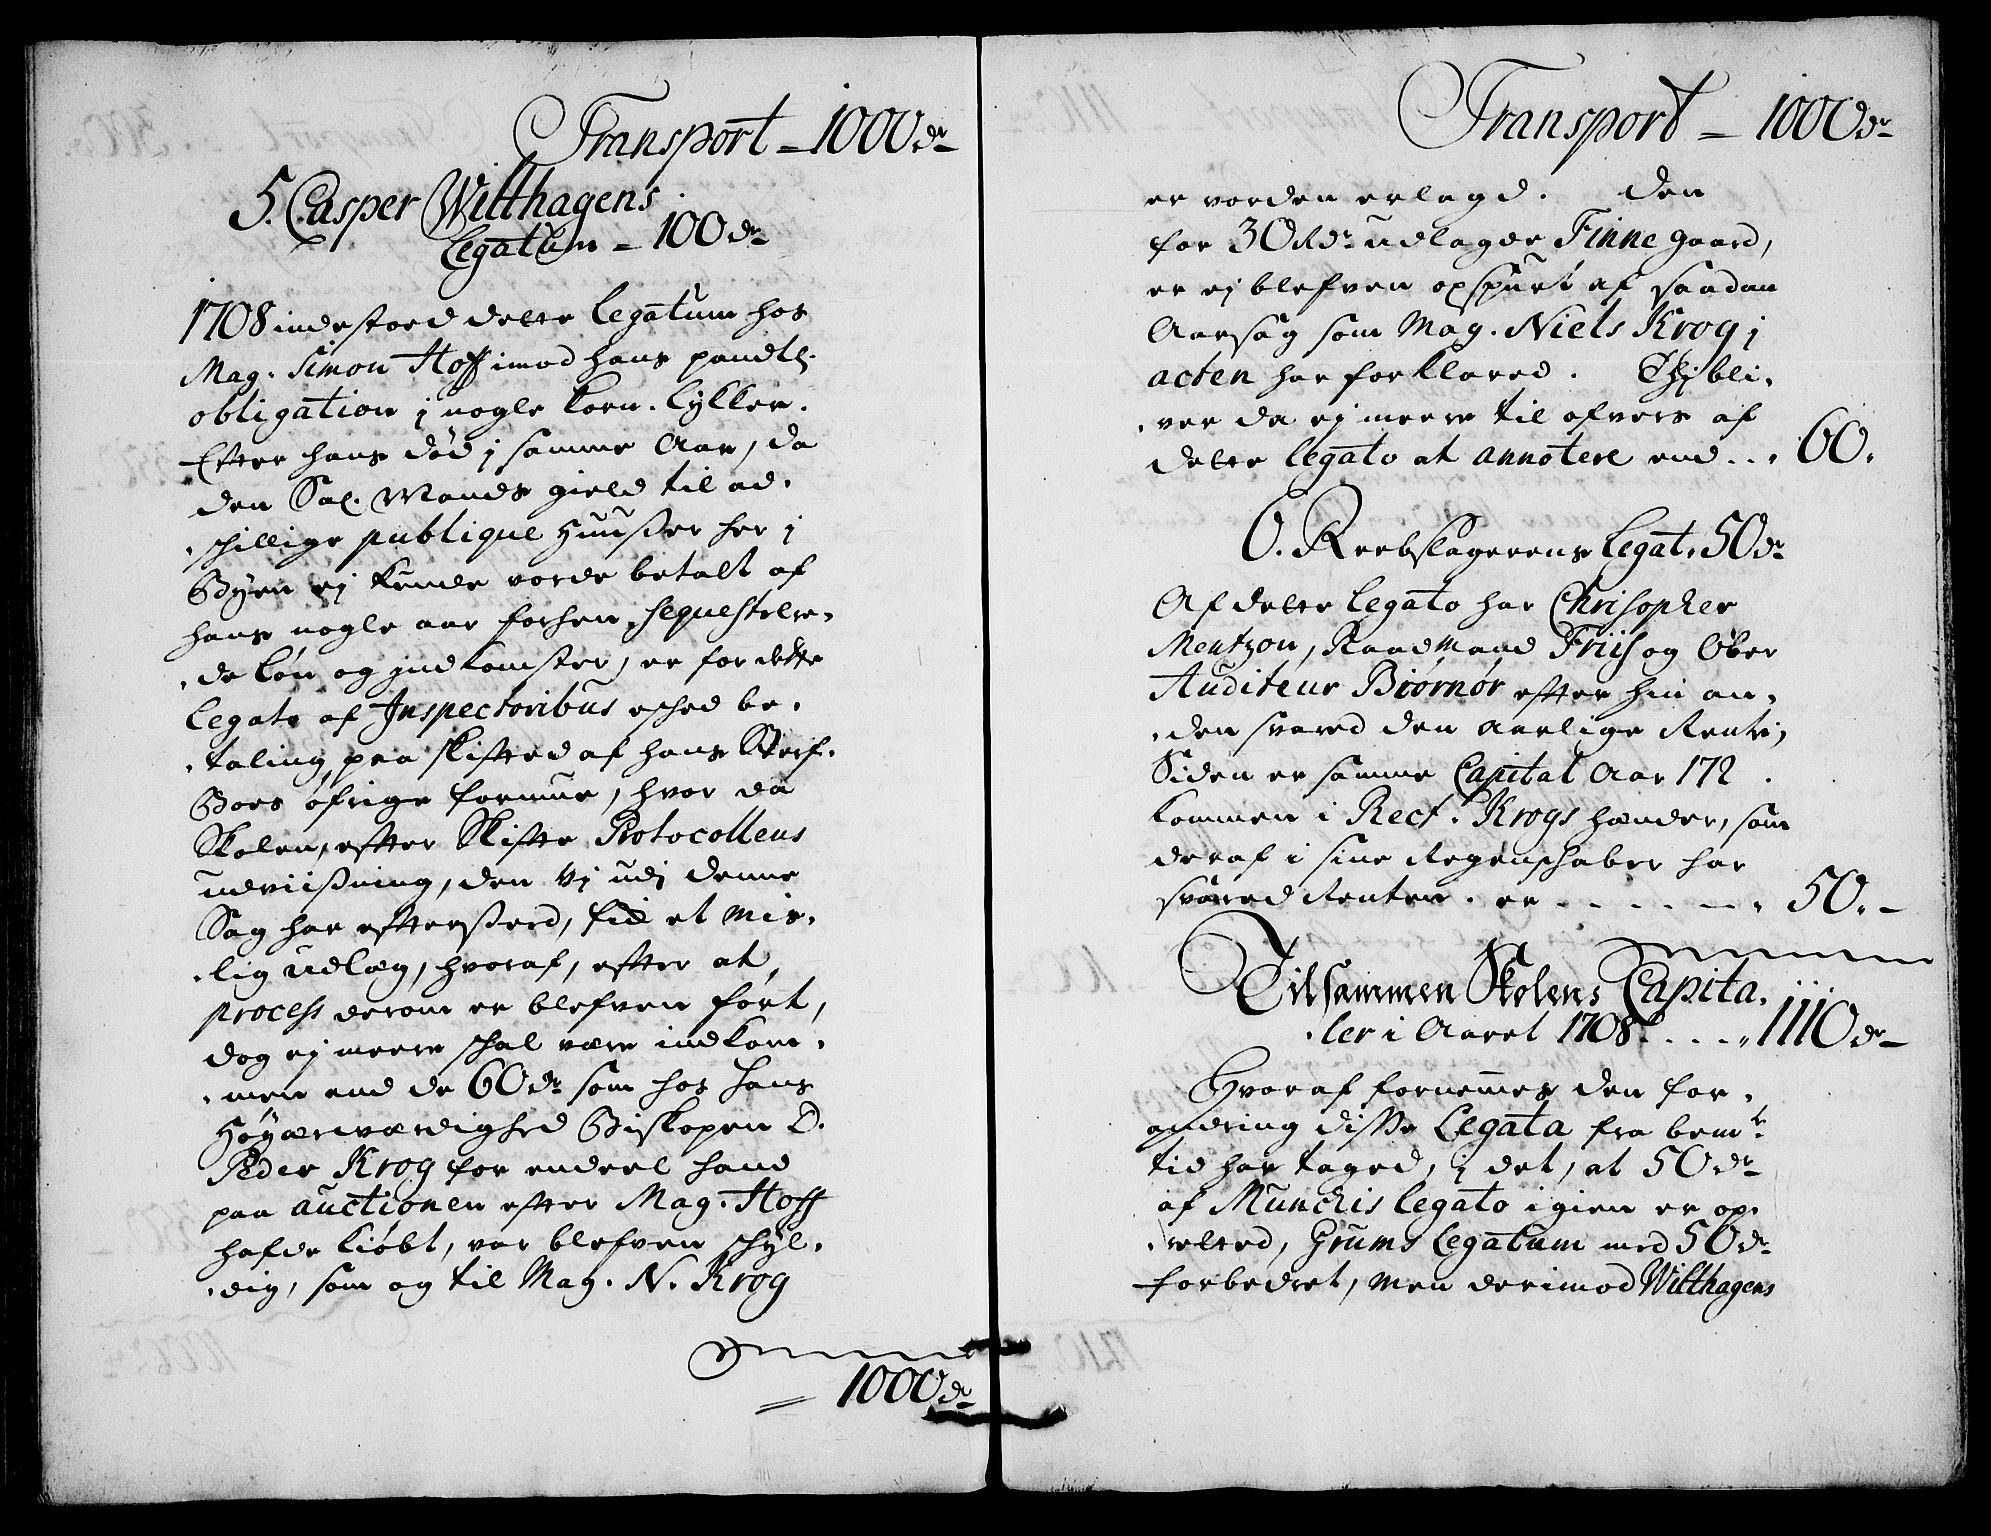 Transport - 1000 dr
5. Casper Wilthagens
Legatum - 100 dr
1708 indestoed dette Legatum hos
Mag. Simon Hoff imod hans pandtl.
obligation j nogle Korn-Tylter.
Efter hans død j samme Aar, da
den Sal. Mands gield til ad-
schillige publique Huußer her j
Byen ej kunde vorde betalt af
hans nogle aar forhen sequestrere-
de løn og jndkomster, er for dette
Legato af Inspectoribus esched be-
taling paa skifted af hans Sterf-
Boes øfrige formue, hvor da
Skolen, efter Skifte Protocollens
udviißning, den vj udj denne
Sag har efterßeed, fik et mis-
lig udlæg, hvoraf, efter at
process derom er blefven ført,
dog ej meere schal være indkom-
men end de 60 dr som hos Hans
Høyærværdighed Biskopen D.
Peder Krog for endeel hand
paa auctionen efter Mag. Hoff
hafde kiøbt, var blefven schyl-
dig, som og til Mag. N. Krog
= 1000 dr
Transport - 1000 dr
er vorden erlagd. Den
for 30 Rdr udlagde Finne gaard,
er ej blefven opspurt af saadan
Aarsag som Mag. Niels Krog j
acten har forklared. Thj bli-
ver da ej meere til ofvers af
dette Legato at annotere end... 60.
6. Reebslagerens Legat. 50 dr
Af dette Legato har Chrisopher
Mentzon, Raadmand Friis og Ober
Auditeur Biørnør efter hin an-
den svared den Aarlige Rente,
Siden er samme Capital Aar 172 .
kommen i Rect. Krogs hænder, som
deraf i sine Regenschaber har
svared Renten. er - - - - - 50. -
Tilsammen Skolens Capita-
ler i Aaret 1708 . . . . 1110 dr
Hvoraf fornemmes den for-
andring disse Legata fra bemte
tid har taged, j det, at 50 dr
af Munchis Legato igien er op-
retted, Grums Legatum med 50 dr
forbedret, men derimod Wilthagens